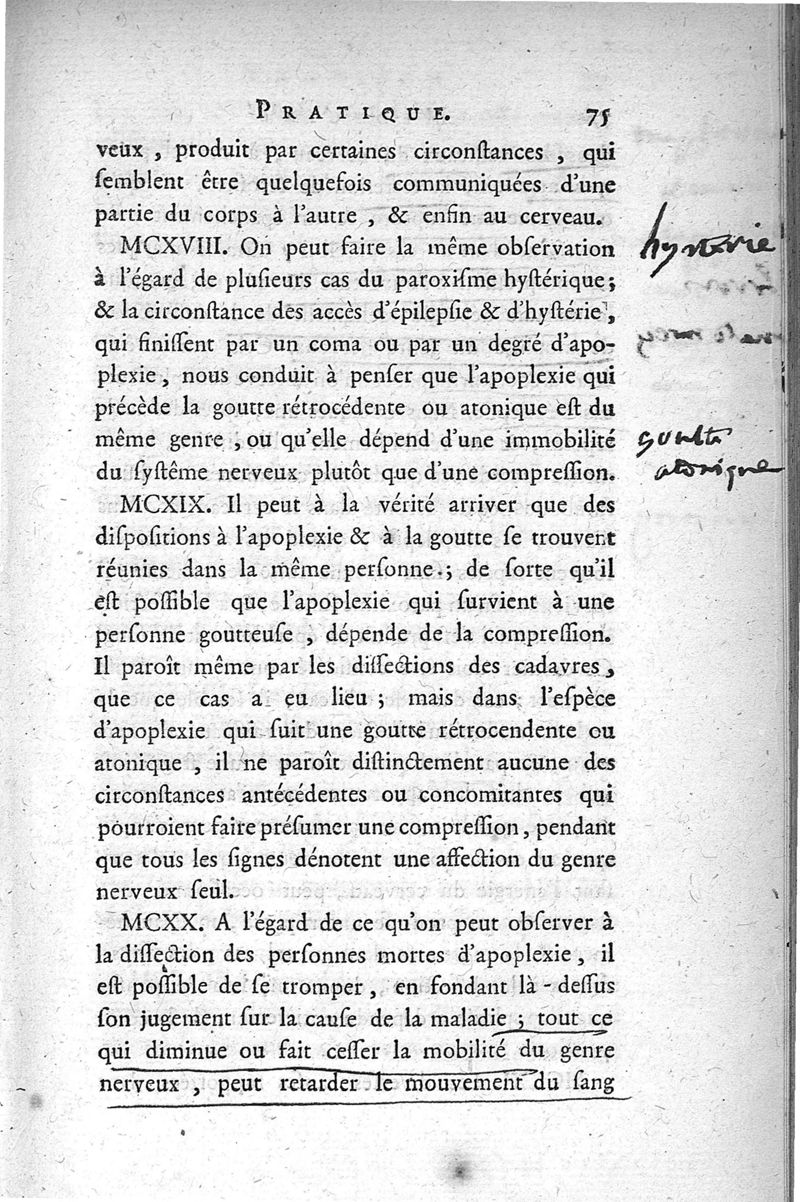 PRATIQUE. 75
veux , produit par certaines circonſtances , qui
ſemblent être quelquefois communiquées d'une
partie du corps à l'autre , & enfin au cerveau.
MCXVIII. On peut faire la même obſervation
hysterie
à l'égard de pluſieurs cas du paroxiſme hyſtérique;
& la circonſtance des accès d'épilepſie & d'hyſtérie,
qui finiſſent par un coma ou par un degré d'apo-
plexie, nous conduit à penſer que l'apoplexie qui
précède la goutte rétrocédente ou atonique eſt du
même genre , ou qu'elle dépend d'une immobilité
goutte
du ſyſtême nerveux plutôt que d'une compreſſion.
atonique
MCXIX. Il peut à la vérité arriver que des
diſpoſitions à l'apoplexie & à la goutte ſe trouvent
réunies dans la même perſonne ; de ſorte qu'il
eſt poſſible que l'apoplexie qui ſurvient à une
perſonne goutteuſe , dépende de la compreſſion.
Il paroît même par les diſſections des cadavres,
que ce cas a eu lieu ; mais dans l'eſpèce
d'apoplexie qui ſuit une goutte rétrocendente ou
atonique , il ne paroît diſtinctement aucune des
circonſtances antécédentes ou concomitantes qui
pourroient faire préſumer une compreſſion, pendant
que tous les ſignes dénotent une affection du genre
nerveux ſeul.
MCXX. A l'égard de ce qu'on peut obſerver à
la diſſection des perſonnes mortes d'apoplexie, il
eſt poſſible de ſe tromper, en fondant là-deſſus
ſon jugement ſur la cauſe de la maladie ; tout ce
qui diminue ou fait ceſſer la mobilité du genre
nerveux , peut retarder le mouvement du ſang